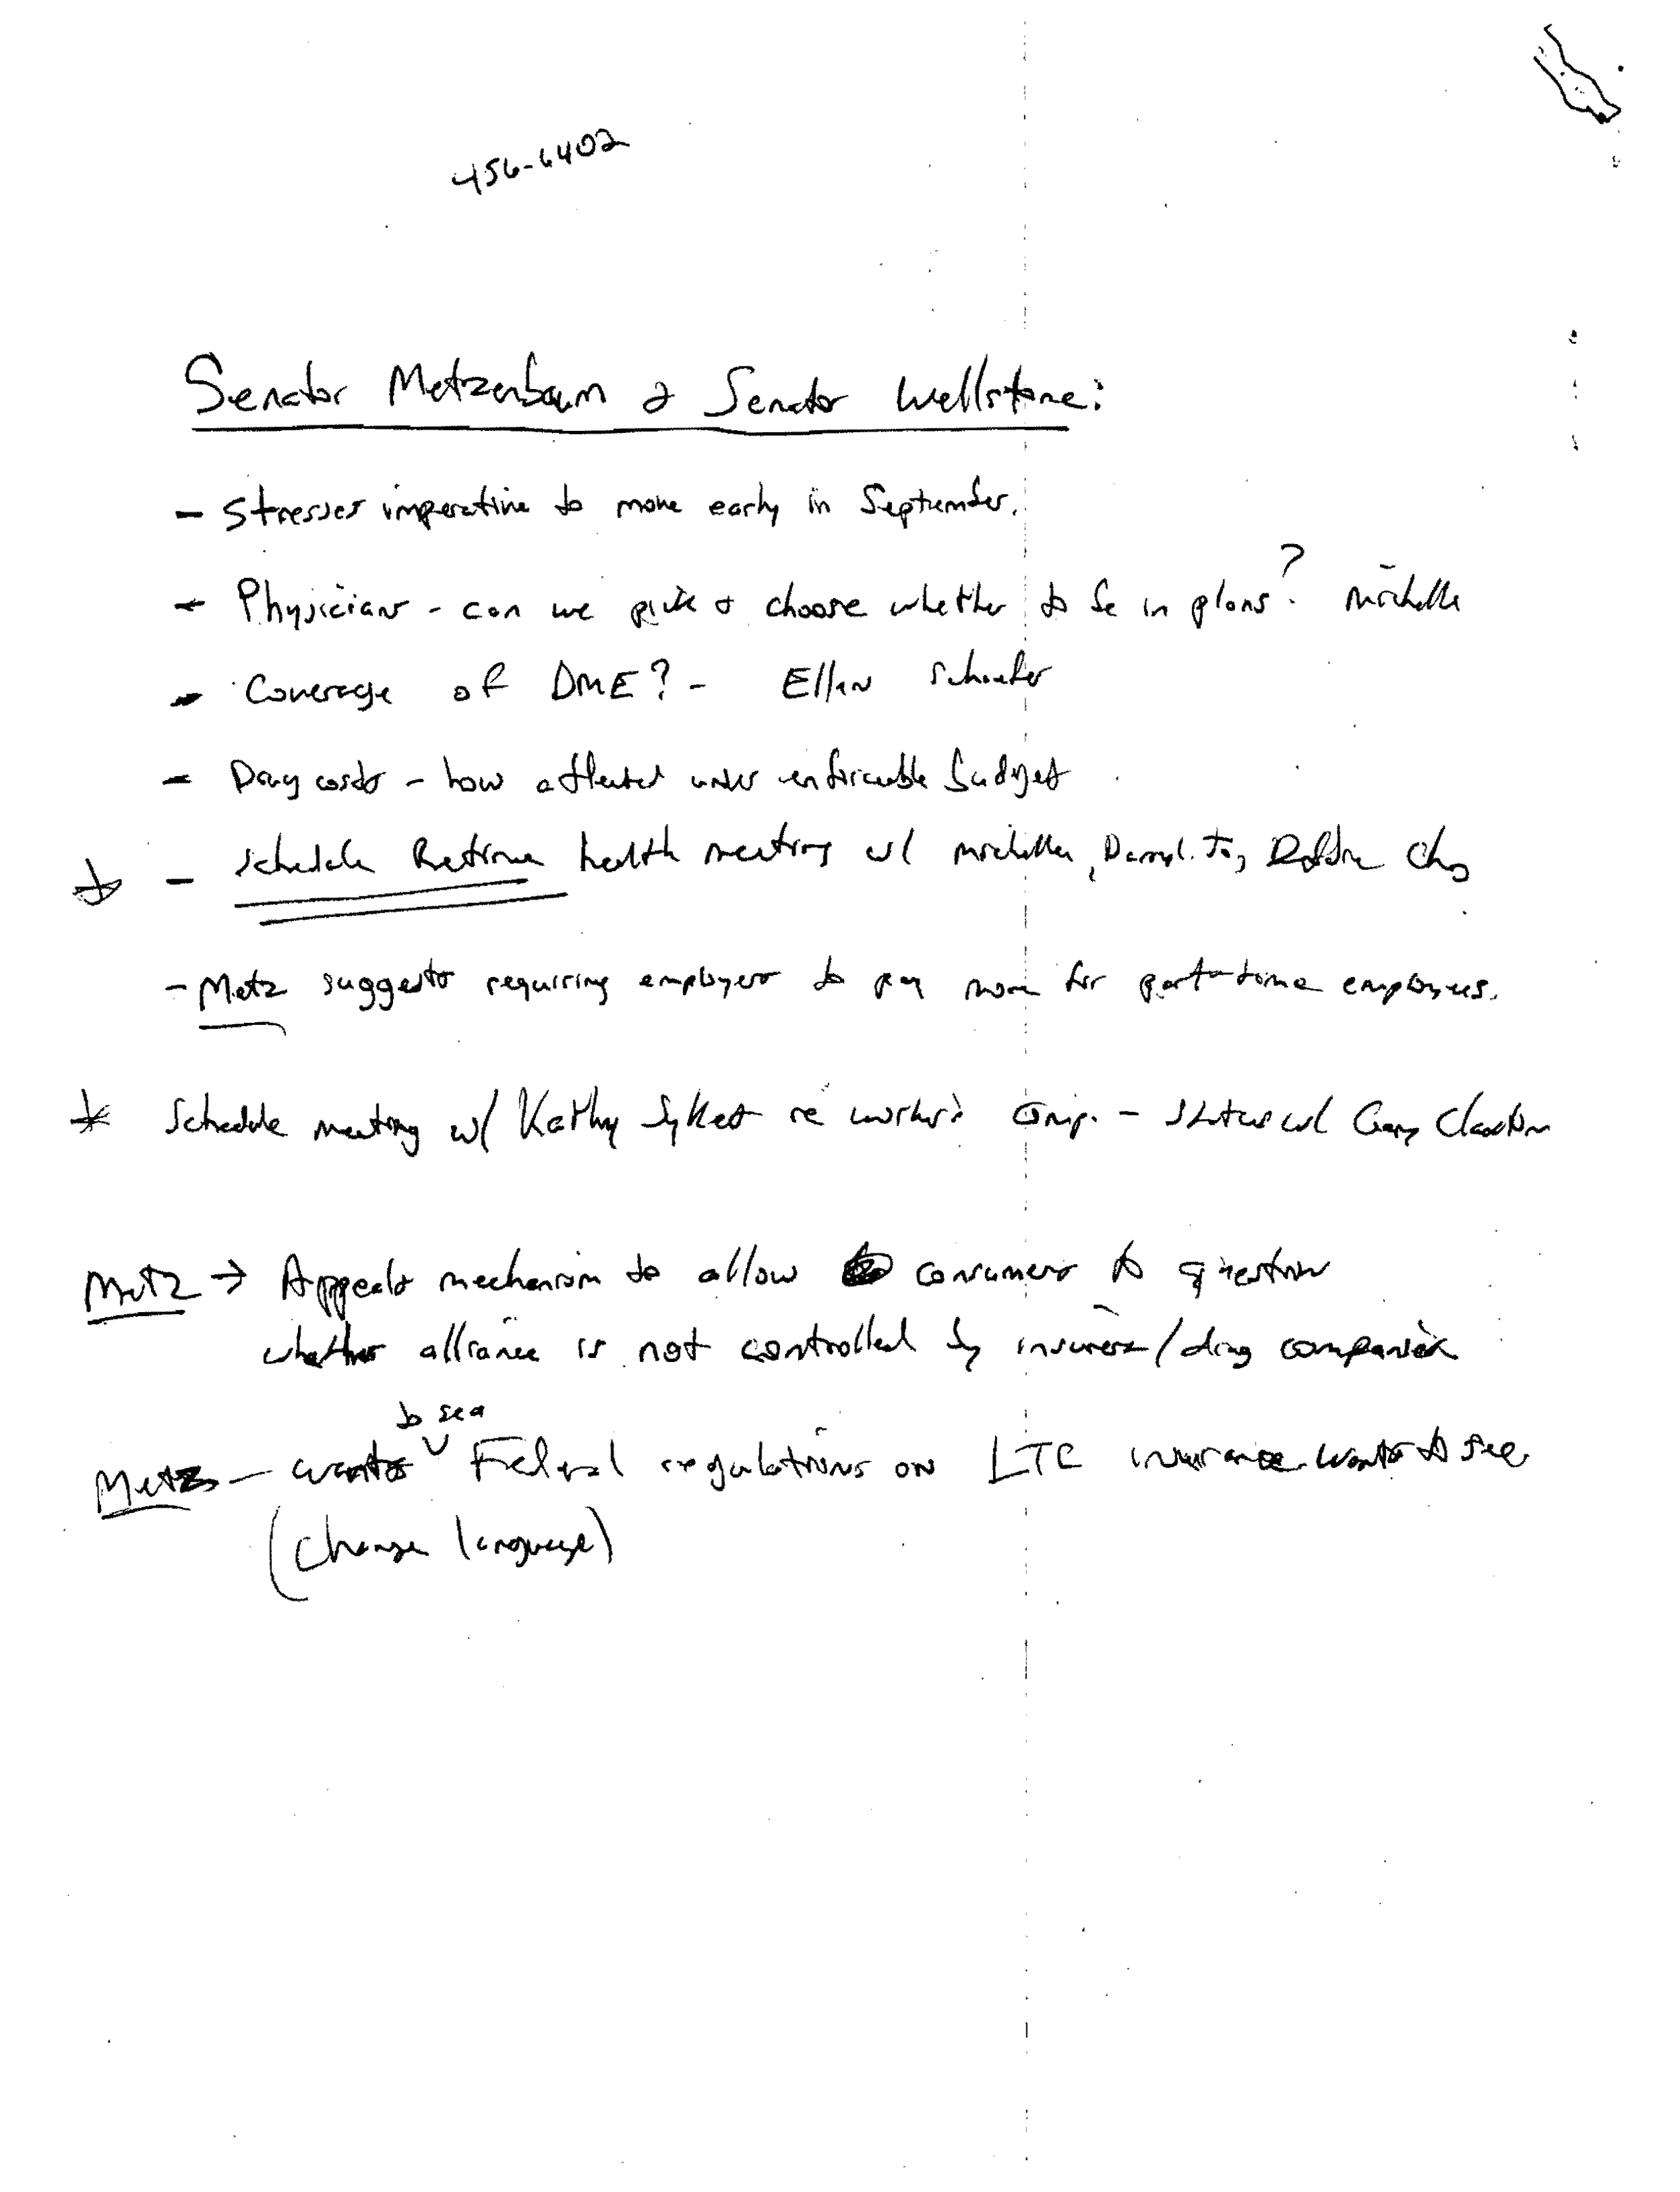 456-6402
Senator Metzenbaum & Senator Wellstone:
- Stresses imperative to move early in September.
- Physicians - can we pick & choose whether to be in plans? Michelle
- Coverage of DME? - Ellen
- Drug costs - how affected under enforceable budget
- Schedule Retiree health meeting w/ Michelle,
- Metz suggests requiring employers to pay more for part-time employees.
* Schedule meeting w/ Kathy re worker's comp. - status w/ Gary Claxton
Metz → Appeals mechanism to allow consumers to question
whether alliance is not controlled by insurers/drug companies
Metz - wants to see Federal regulations on LTC insurance wants to see
(Change language)